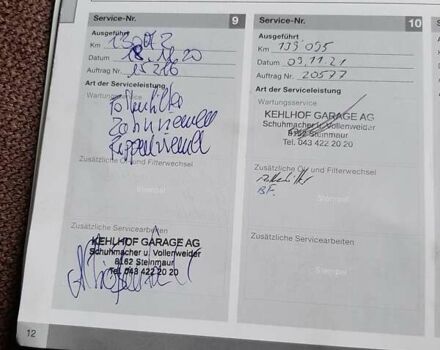 Service-Nr. 9
Ausgeführt
Km
Datum 18.12.20
Auftrag Nr. 15216
Art der Serviceleistung
Wartungsservice
Zahnriemen
Zusätzliche Öl und Filterwechsel
Stempel
Zusätzliche Servicearbeiten
KEHLHOF GARAGE AG
Schuhmacher u. Vollenweider
8162 Steinmaur
Tel. 043 422 20 20
12
Service-Nr. 10
Ausgeführt
Km 139 095
Datum 03.11.21
Auftrag Nr. 20577
Art der Serviceleistung
Wartungsservice
KEHLHOF GARAGE AG
Schuhmacher u. Vollenweider
8162 Steinmaur
Tel. 043 422 20 20
Zusätzliche Öl und Filterwechsel
BF.
Stempel
Zusätzliche Servicearbeiten
Stempel